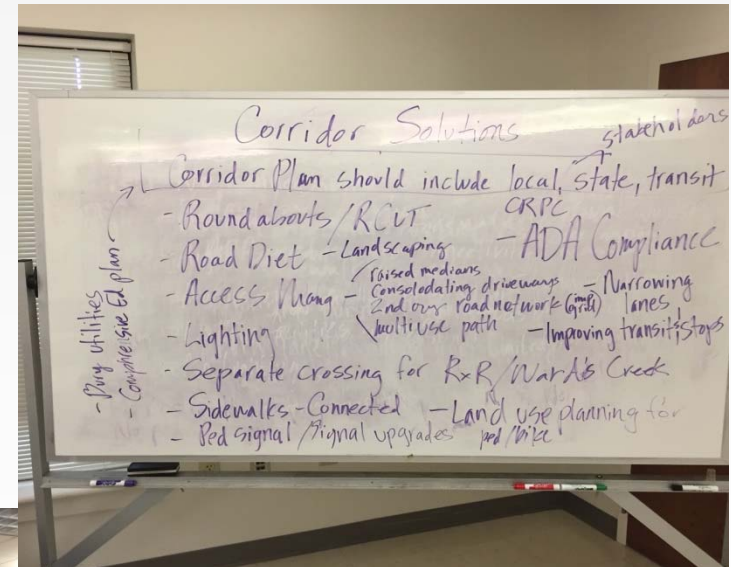 Corridor Solutions
stakeholders
Corridor Plan should include local, state, transit
CRPC
- Roundabouts / RCUT
- ADA Compliance
- Road Diet - Landscaping
raised medians
- Access Mang - Consolodating driveways - Narrowing lanes
2ndary road network (imp grid)
multi use path - Improving transit stops
- Lighting
- Separate crossing for RxR / Creek
- Sidewalks - Connected - Land use planning for ped / bike
- Ped signal / signal upgrades
- Bury utilities
- Comphresive Ed plan